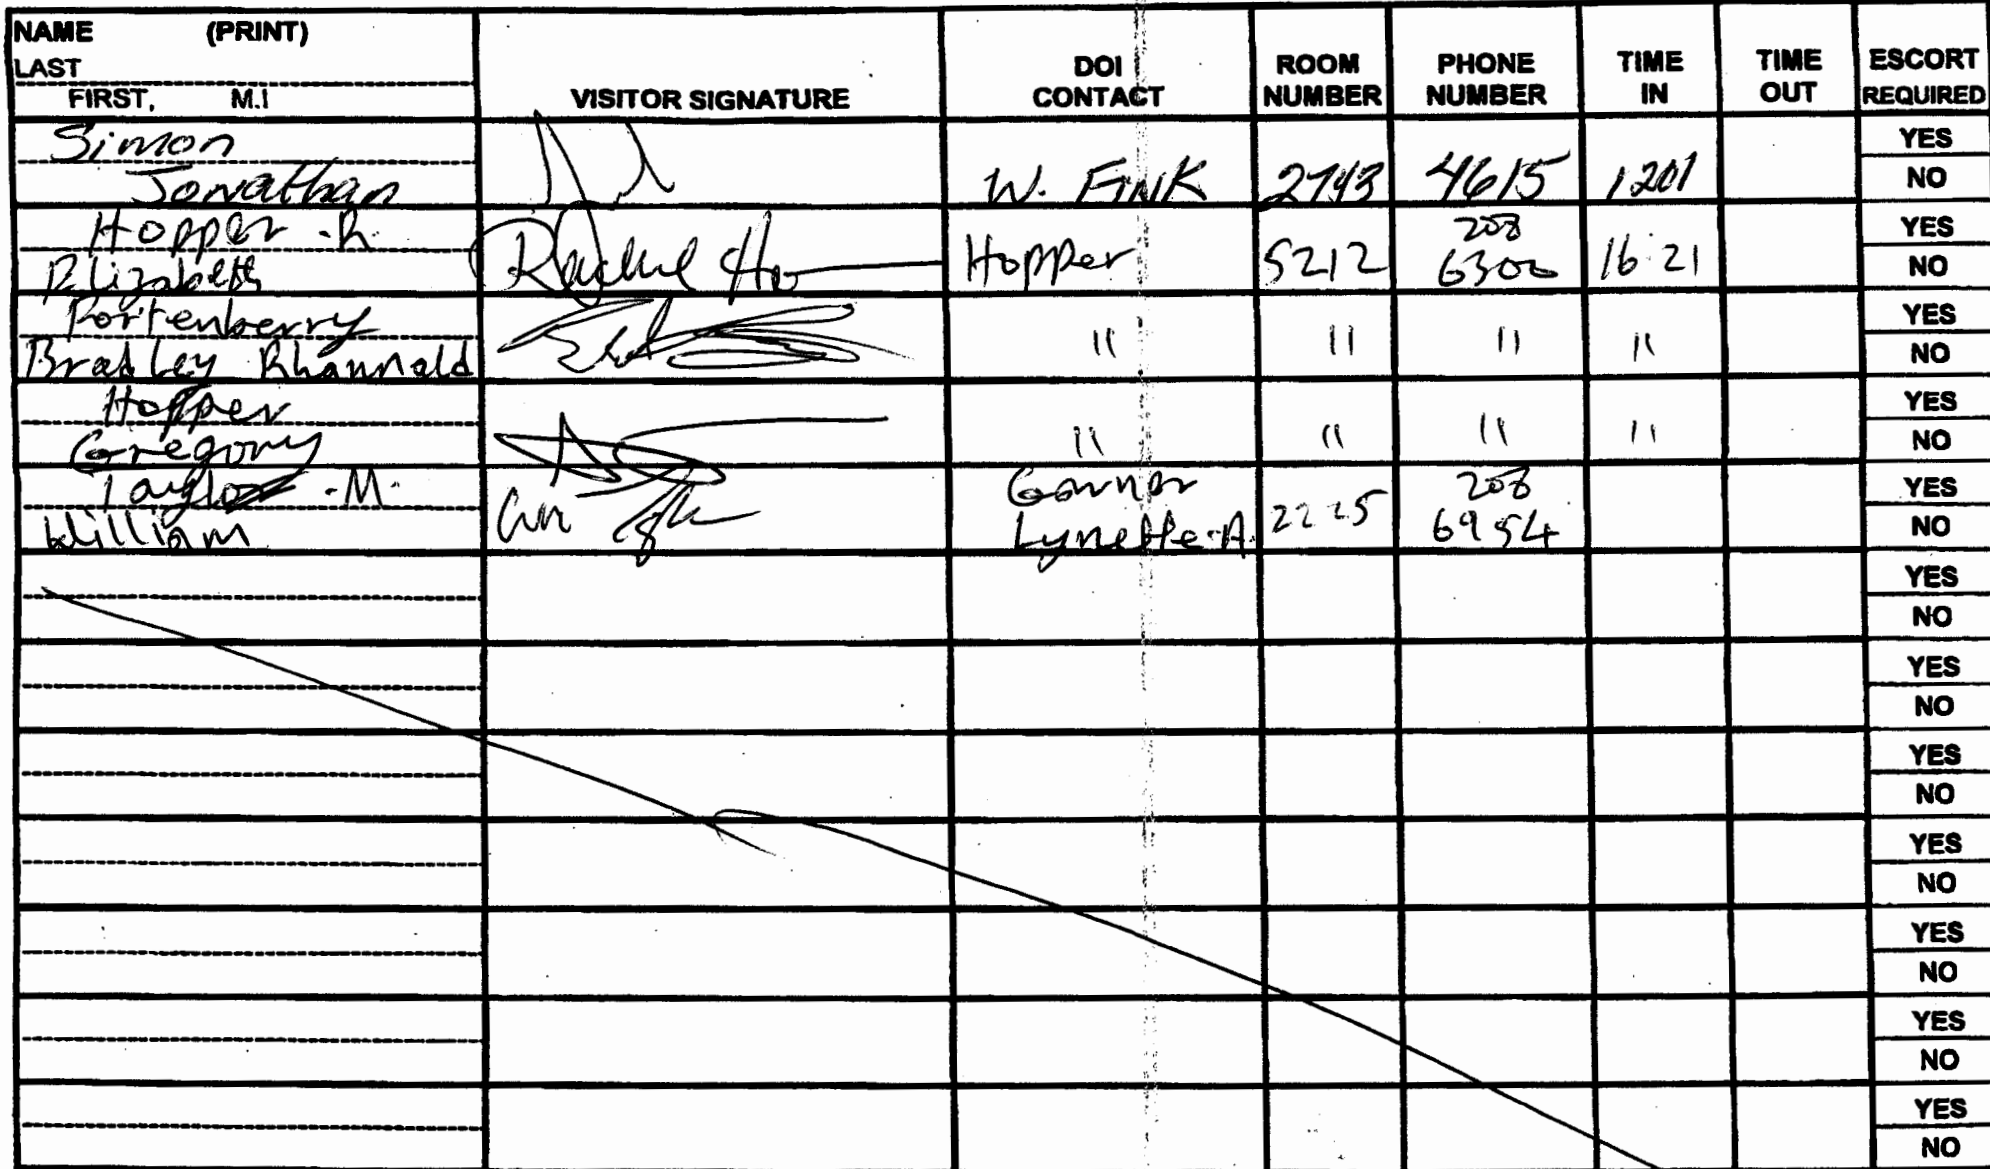 NAME (PRINT)
LAST
FIRST, M.I
VISITOR SIGNATURE
DOI CONTACT
ROOM NUMBER
PHONE NUMBER
TIME IN
TIME OUT
ESCORT REQUIRED
Simon
Jonathan
W. FINK 2743 4615 1201
YES
NO
Hopper - R.
Elizabeth
Hopper 5212 208 6300 16:21
YES
NO
Bradley
" " " "
YES
NO
Hopper
Gregory
" " " "
YES
NO
Taylor - M.
William
Lynette A. 2225 208 6954
YES
NO
YES
NO
YES
NO
YES
NO
YES
NO
YES
NO
YES
NO
YES
NO